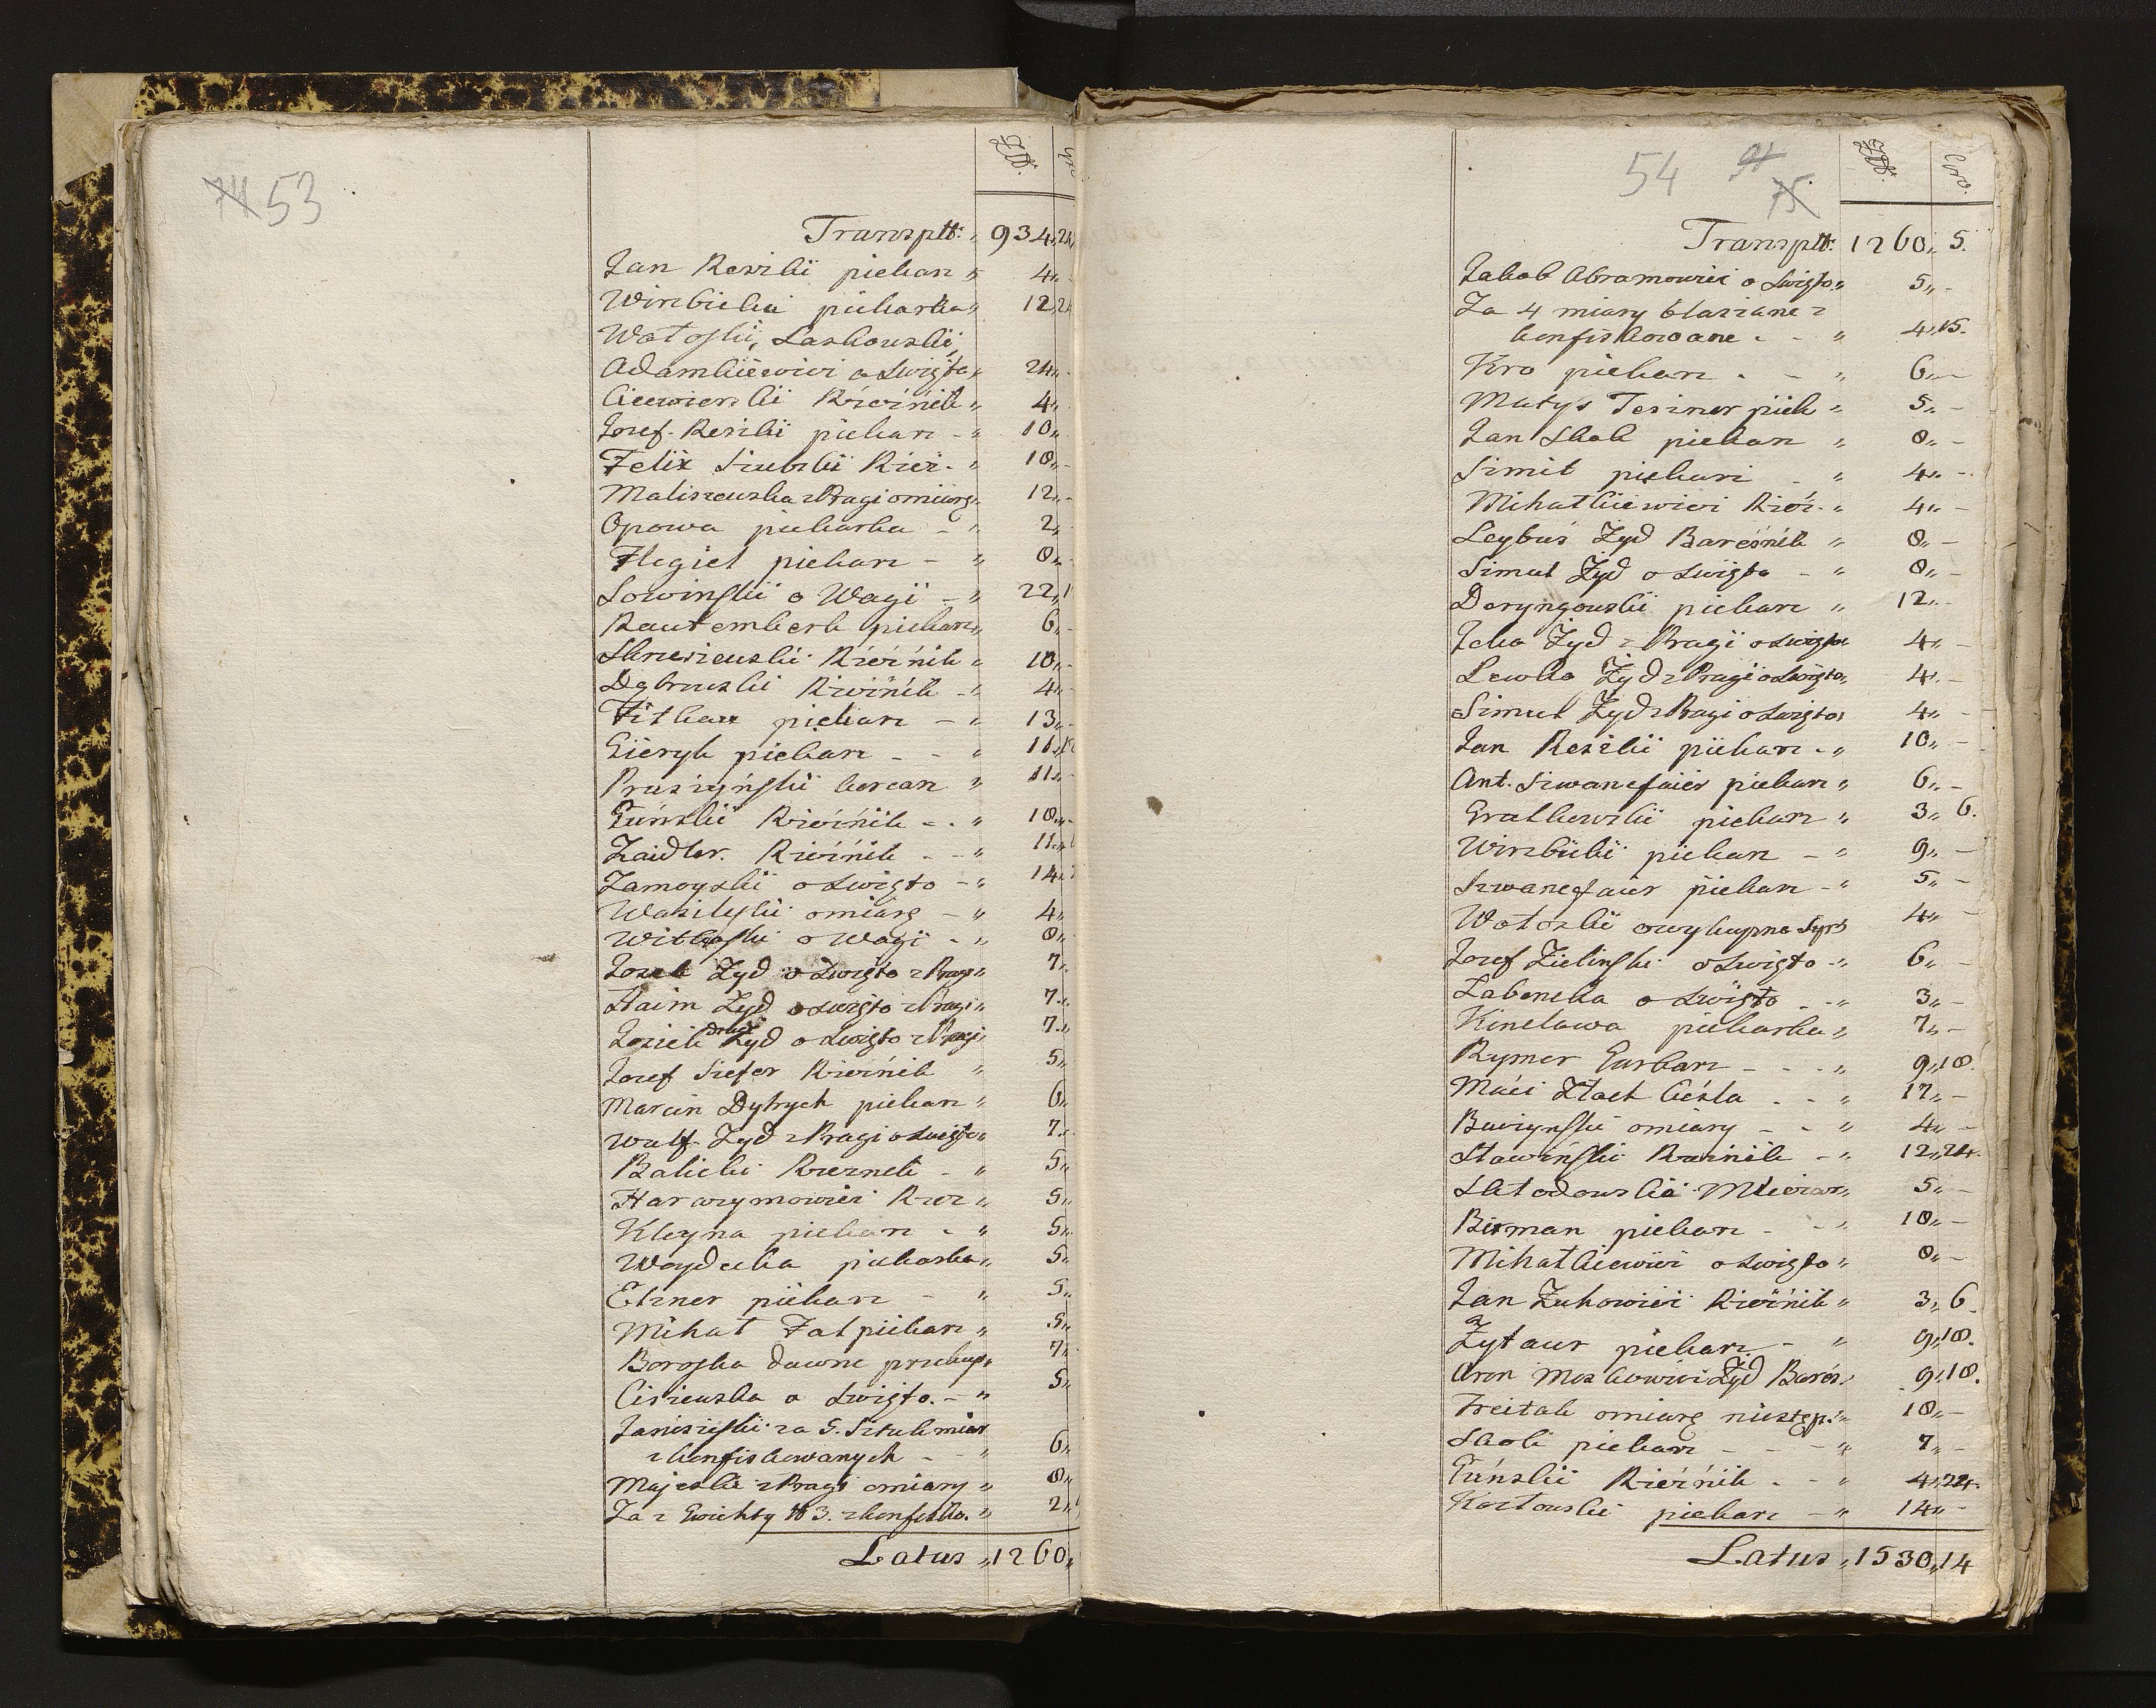 53
Złł. gr.
Transptt: 934„24
Jan Reszkii piekarz „ 4„ -
Wirzbicka piekarka „ 12„24
Watoskii, Laskowskii,
Adamkiiewicz o Święto „ 24„ -
Ciewierskii Rzeźńik „ 4„
Jozef Reszkii piekarz - „ 10„
Felix Siubskii Rzeź. „ 18„ -
Maliszewska z Pragi o miarę „ 12„ -
Opowa piekarka - „ 2„
Flegiel piekarz - „ 8„ -
Sowinskii o Wagi - „ 22„
Rautemberk piekarz „ 6„ -
Skrzesiewskii Rzeźńik „ 10„ -
Dąbrowskii Rzeźńik - „ 4„ -
Fitkau piekarz - „ 13„ -
Gieryk piekarz - - „ 11„
Prusżyńskii korcarz „ 11„ -
Gúńskii Rzeźńik - . „ 18„ -
Zaidler. Rzeźńik - - „ 11„
Zamoyskii o Święto - „ 14„
Wasilyskii o miarę - „ 4„
Witkoskii o Wagi - „ 8„
Josek Żyd o Święto z Pragi „ 7„
Haim Żyd o Święto z Pragi „ 7„
Josiek drugi Żyd o Święto z Pragi 7„
Jozef Siefer Rzeźńik „ 5„
Marcin Dytrych piekarz „ 6„
Wulf Żyd z Pragi o Święto „ 7„
Balicki Rzeznik - „ 5„
Harazymowicz Rzez „ 5„
Kleyna piekarz - „ 5„
Woydecka piekarka „ 5„
Elzner piekarz - „ 5„
Mihał Fat piekarz „ 5„
Boroska dawne przekup „ 7„
Cisiewska o Święto. - „ 5„
Janiszeskii za 5. Sztuk miar
zkonfiskowanych - - „ 6„
Majeskii z Pragi o miary „ 8„
Za 2 Gwichty ℔ 3. zkonfisko. „ 2„
Latus „1260„
54
75
Złł. Gro.
Transptt: 1260„ 5.
Jakob Abramowicz o Święto „ 5„ -
Za 4 miary blaszane z
konfiskowane - - „ 4„15.
Kro piekarz . - „ 6„ -
Matys Teszner piek „ 5„ -
Jan Skok piekarz „ 8„ -
Simit piekarz - „ 4„ -
Mihałkiewicz Rzeź. „ 4„ -
Leybuś Żyd Bareśnik „ 8„ -
Simul Żyd o Święto - „ 8„ -
Deryngowskii piekarz „ 12„ -
Icko Żyd z Pragi o Święto 4„ -
Lewko Żyd z Pragi o Święto „ 4„ -
Simul Żyd z Pragi o Święto 4„ -
Jan Reszkii piekarz - „ 10„ -
Ant. Szwancfaier piekarz „ 6„ -
Gratkowskii piekarz „ 3„ 6.
Wirzbickii piekarz - „ 9„ -
Szwancfaier piekarz - „ 5„ -
Watoskii o wykupno Syrs 4„ -
Jozef Zielinskii o Święto - „ 6„ -
Zabenska o Święto - - „ 3„ -
Kinelowa piekarka „ 7„ -
Rymer Garbarz - - - „ 9„18.
Maći Ztoch Cieśla - - „ 17„ -
Buczynskii o miary - - „ 4„ -
Stawińskii Rzeźńik - „ 12„24.
Skłodowskii Mleczar „ 5„ -
Birman piekarz - - „ 10„ -
Mihałkiewicz o Święto „ 8„ -
Jan Zuhowicz Rzeźńik „ 3„ 6.
Zytaur piekarz - „ 9„18.
Aron Moskowicz Żyd Bareś. „ 9„18.
Freitak o miarę niestęp. „ 18„ -
Skok piekarz - - - „ 7„ -
Gúńskii Rzeźńik - - „ 4„24.
Koztowskii piekarz - „ 14„ -
Latus „1530„14